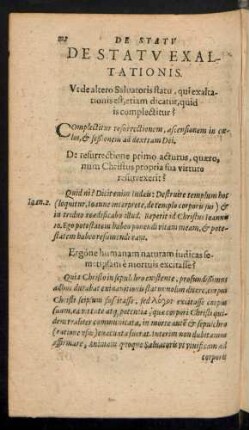 DE STATV
DE STATV EXAL-
TATIONIS.
Vt de altero Saluatoris statu, qui exalta-
tionis est, etiam dicatur, quid
is complectitur?
Complectitur resurrectionem, ascensionem in cœ-
los, & sessionem ad dexteram Dei.
De resurrectione primo acturus, quæro,
num Christus propria sua virtute
resurrexerit?
Quid ni? Dicit enim Iudæis: Destruite templum hoc
Ioan. 2. (loquitur, Ioanne interprete, de templo corporis sui) &
in triduo reædificabo illud. Repetit id Christus Ioanne
Ego potestatem habeo ponendi vitam meam, & pote-
statem habeo resumendi eam.
Ergóne humanam naturam iudicas se-
metipsam è mortuis excitasse?
Quia Christi in sepulchro existente, profundissimus
adhuc durabat exinanitionis status nolim dicere, corpus
Christi seipsum suscitasse, sed λόγον excitasse corpus
suum, ea virtute atq, potentia; quæ corpori Christi qui-
dem realiter communicata, in morte autem & sepulchro
(ratione usus) exinanita fuerat. Interim non dubitamus
affirmare, animam quoque Saluatoris vt viuificam ad
corporis